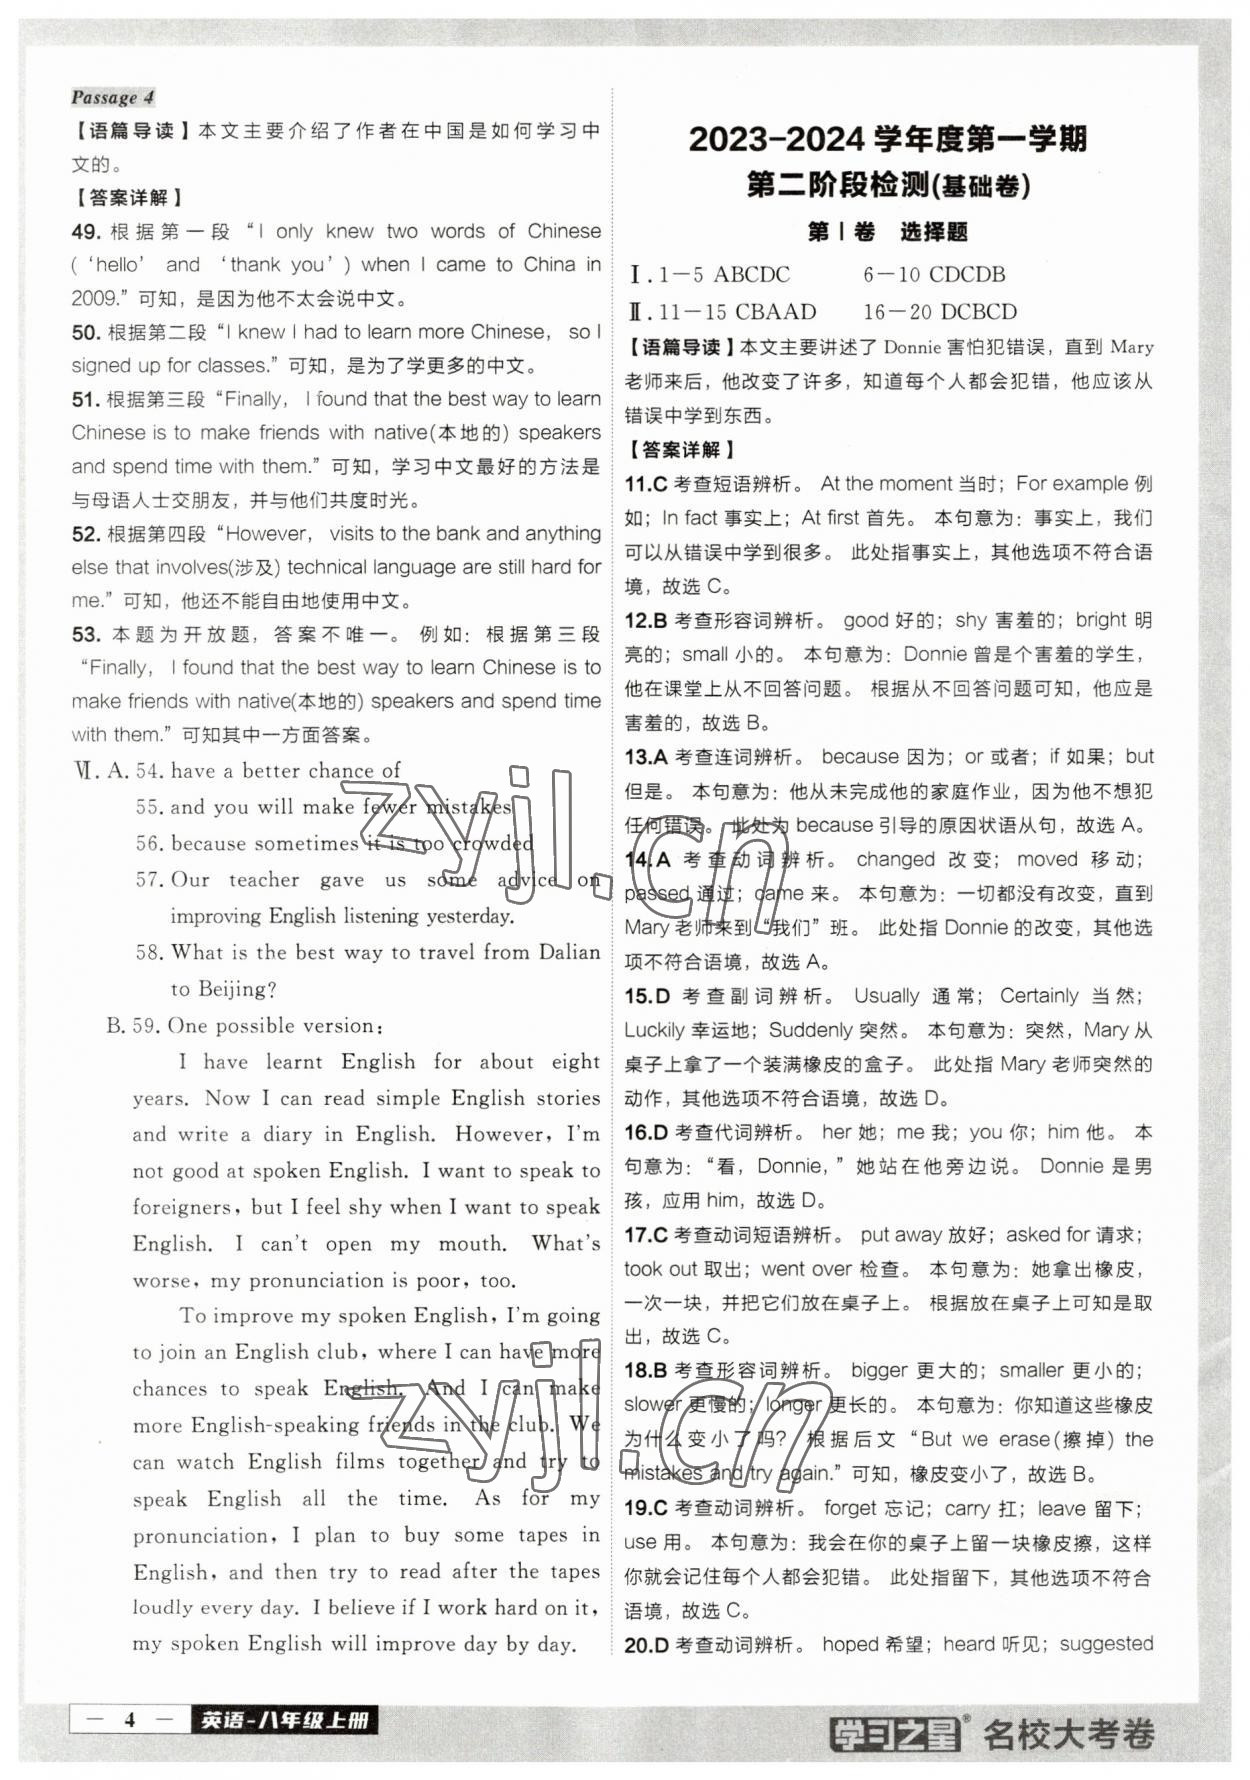 Passage 4
【语篇导读】本文主要介绍了作者在中国是如何学习中
文的。
【答案详解】
49. 根据第一段“I only knew two words of Chinese
(‘hello’ and ‘thank you’) when I came to China in
2009.”可知，是因为他不太会说中文。
50. 根据第二段“I knew I had to learn more Chinese, so I
signed up for classes.”可知，是为了学更多的中文。
51. 根据第三段“Finally, I found that the best way to learn
Chinese is to make friends with native(本地的) speakers
and spend time with them.”可知，学习中文最好的方法是
与母语人士交朋友，并与他们共度时光。
52. 根据第四段“However, visits to the bank and anything
else that involves(涉及) technical language are still hard for
me.”可知，他还不能自由地使用中文。
53. 本题为开放题，答案不唯一。例如：根据第三段
“Finally, I found that the best way to learn Chinese is to
make friends with native(本地的) speakers and spend time
with them.”可知其中一方面答案。
Ⅵ. A. 54. have a better chance of
55. and you will make fewer mistakes
56. because sometimes it is too crowded
57. Our teacher gave us some advice on
improving English listening yesterday.
58. What is the best way to travel from Dalian
to Beijing?
B. 59. One possible version:
I have learnt English for about eight
years. Now I can read simple English stories
and write a diary in English. However, I'm
not good at spoken English. I want to speak to
foreigners, but I feel shy when I want to speak
English. I can't open my mouth. What's
worse, my pronunciation is poor, too.
To improve my spoken English, I'm going
to join an English club, where I can have more
chances to speak English. And I can make
more English-speaking friends in the club. We
can watch English films together and try to
speak English all the time. As for my
pronunciation, I plan to buy some tapes in
English, and then try to read after the tapes
loudly every day. I believe if I work hard on it,
my spoken English will improve day by day.
2023－2024学年度第一学期
第二阶段检测(基础卷)
第Ⅰ卷 选择题
Ⅰ. 1－5 ABCDC 6－10 CDCDB
Ⅱ. 11－15 CBAAD 16－20 DCBCD
【语篇导读】本文主要讲述了 Donnie 害怕犯错误，直到 Mary
老师来后，他改变了许多，知道每个人都会犯错，他应该从
错误中学到东西。
【答案详解】
11.C 考查短语辨析。 At the moment 当时；For example 例
如；In fact 事实上；At first 首先。 本句意为：事实上，我们
可以从错误中学到很多。 此处指事实上，其他选项不符合语
境，故选 C。
12.B 考查形容词辨析。 good 好的；shy 害羞的；bright 明
亮的；small 小的。 本句意为：Donnie 曾是个害羞的学生，
他在课堂上从不回答问题。 根据从不回答问题可知，他应是
害羞的，故选 B。
13.A 考查连词辨析。 because 因为；or 或者；if 如果；but
但是。 本句意为：他从未完成他的家庭作业，因为他不想犯
任何错误。 此处为 because 引导的原因状语从句，故选 A。
14.A 考查动词辨析。 changed 改变；moved 移动；
passed 通过；came 来。 本句意为：一切都没有改变，直到
Mary 老师来到“我们”班。 此处指 Donnie 的改变，其他选
项不符合语境，故选 A。
15.D 考查副词辨析。 Usually 通常；Certainly 当然；
Luckily 幸运地；Suddenly 突然。 本句意为：突然，Mary 从
桌子上拿了一个装满橡皮的盒子。 此处指 Mary 老师突然的
动作，其他选项不符合语境，故选 D。
16.D 考查代词辨析。 her 她；me 我；you 你；him 他。 本
句意为：“看，Donnie，”她站在他旁边说。 Donnie 是男
孩，应用 him，故选 D。
17.C 考查动词短语辨析。 put away 放好；asked for 请求；
took out 取出；went over 检查。 本句意为：她拿出橡皮，
一次一块，并把它们放在桌子上。 根据放在桌子上可知是取
出，故选 C。
18.B 考查形容词辨析。 bigger 更大的；smaller 更小的；
slower 更慢的；longer 更长的。 本句意为：你知道这些橡皮
为什么变小了吗？ 根据后文“But we erase(擦掉) the
mistakes and try again.”可知，橡皮变小了，故选 B。
19.C 考查动词辨析。 forget 忘记；carry 扛；leave 留下；
use 用。 本句意为：我会在你的桌子上留一块橡皮擦，这样
你就会记住每个人都会犯错。 此处指留下，其他选项不符合
语境，故选 C。
20.D 考查动词辨析。 hoped 希望；heard 听见；suggested
— 4 — 英语-八年级上册
学习之星® 名校大考卷
zyjl.cn
zyjl.cn